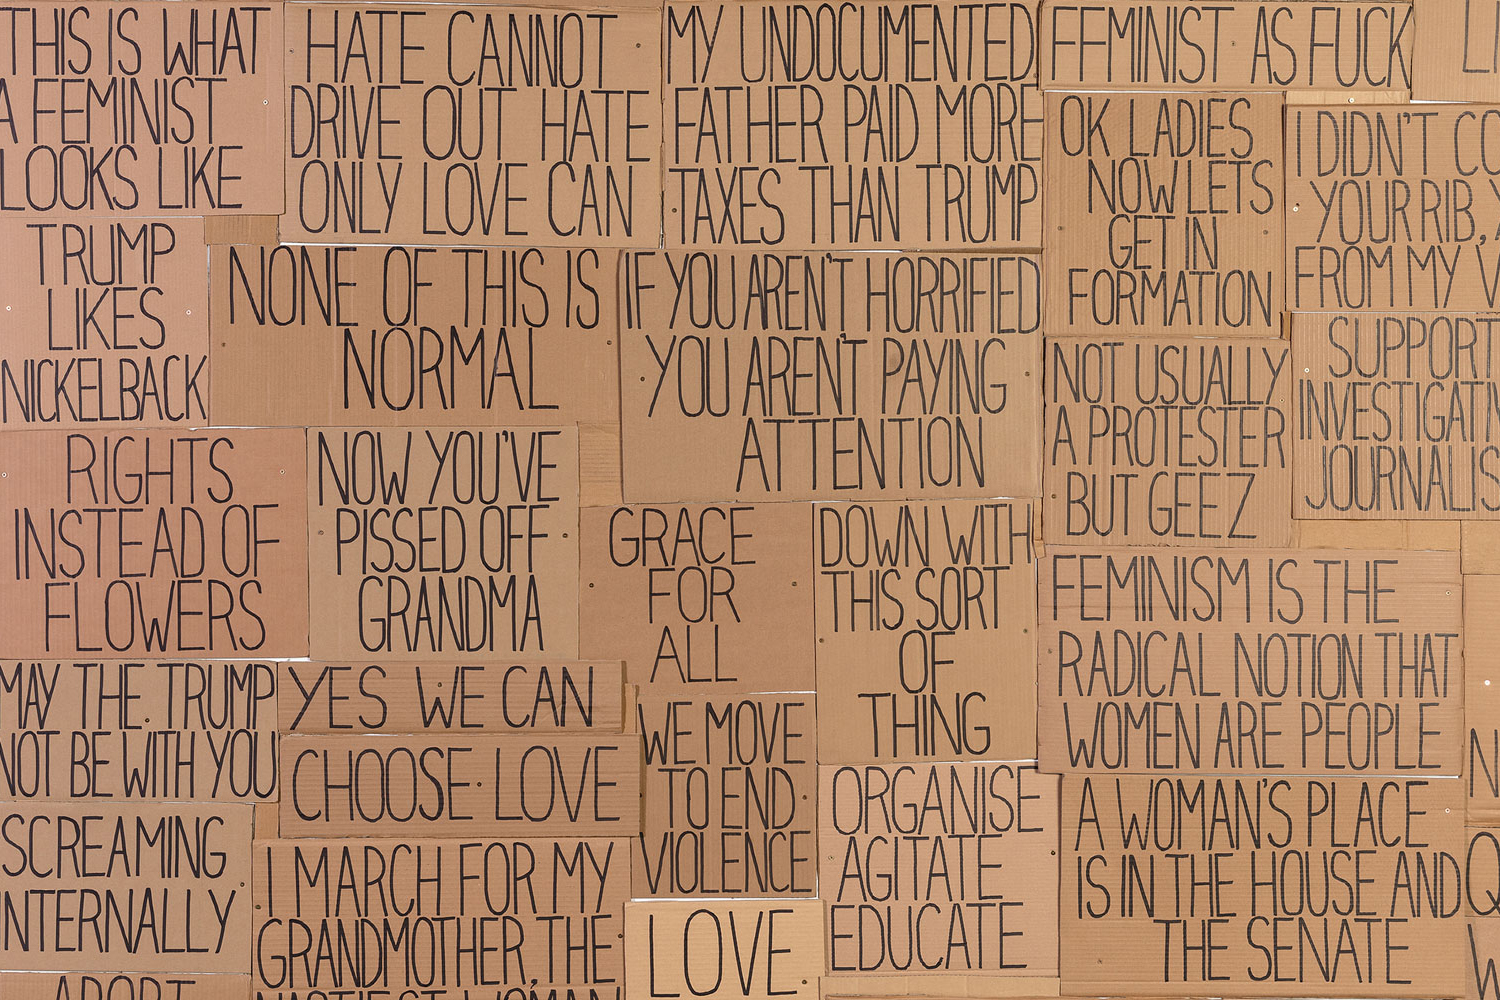 THIS IS WHAT
A FEMINIST
LOOKS LIKE
HATE CANNOT
DRIVE OUT HATE
ONLY LOVE CAN
MY UNDOCUMENTED
FATHER PAID MORE
TAXES THAN TRUMP
FEMINIST AS FUCK
OK LADIES
NOW LETS
GET IN
FORMATION
I DIDN'T
YOUR RIB,
FROM MY
TRUMP
LIKES
NICKELBACK
NONE OF THIS IS
NORMAL
IF YOU AREN'T HORRIFIED
YOU AREN'T PAYING
ATTENTION
NOT USUALLY
A PROTESTER
BUT GEEZ
SUPPORT
INVESTIGATIV
JOURNALIS
RIGHTS
INSTEAD OF
FLOWERS
NOW YOU'VE
PISSED OFF
GRANDMA
GRACE
FOR
ALL
DOWN WITH
THIS SORT
OF
THING
FEMINISM IS THE
RADICAL NOTION THAT
WOMEN ARE PEOPLE
MAY THE TRUMP
NOT BE WITH YOU
YES WE CAN
CHOOSE LOVE
WE MOVE
TO END
VIOLENCE
ORGANISE
AGITATE
EDUCATE
A WOMAN'S PLACE
IS IN THE HOUSE AND
THE SENATE
SCREAMING
INTERNALLY
I MARCH FOR MY
GRANDMOTHER, THE
NASTIEST WOMAN
LOVE